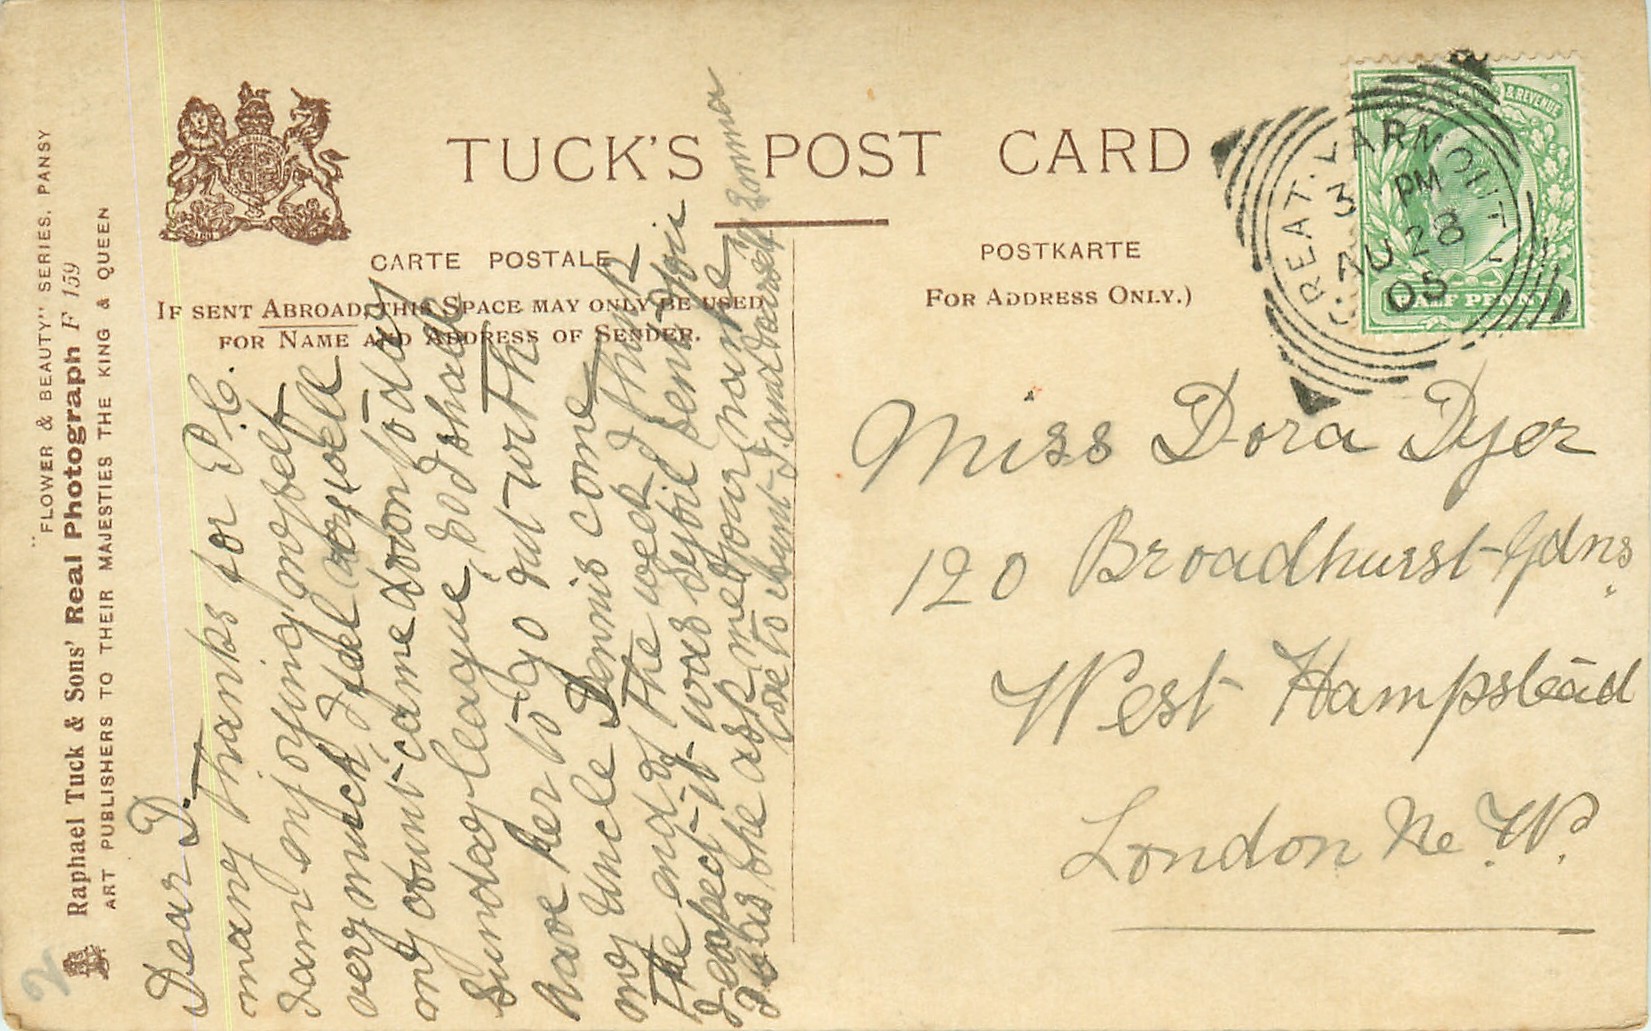 "FLOWER & BEAUTY" SERIES. PANSY
Raphael Tuck & Sons' Real Photograph F 159
ART PUBLISHERS TO THEIR MAJESTIES THE KING & QUEEN
TUCK'S POST CARD
CARTE POSTALE
POSTKARTE
IF SENT ABROAD, THIS SPACE MAY ONLY BE USED
FOR NAME AND ADDRESS OF SENDER.
FOR ADDRESS ONLY.)
& REVENUE
HALF PENNY
GREAT. YARMOUTH
3 PM
AU 28
05
Dear D.
many thanks for P.C.
I am enjoying myself
very much, I feel very well
my Aunt came down today
Sunday league, so I shall
have her to go out with
my Uncle Dennis come
the end of the week I think
I expect it was Sybil Bendon
as she ask me your name
love to Aunt J. and yourself Lorna
Miss Dora Dyer
120 Broadhurst Gdns
West Hampstead
London N. W.